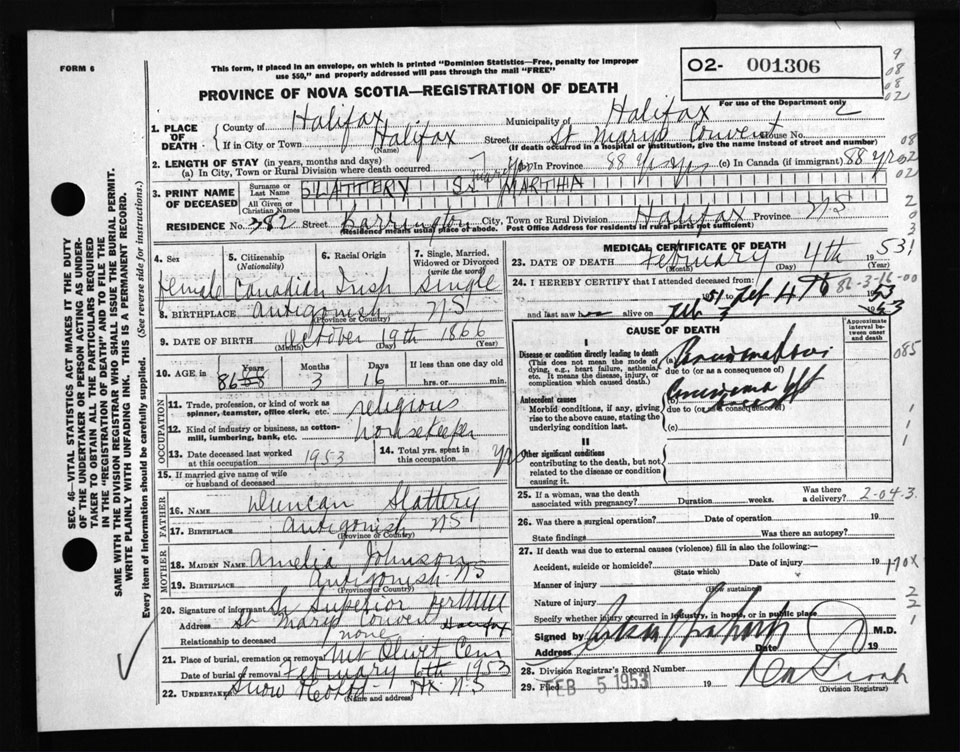 FORM 6
This form, if placed in an envelope, on which is printed "Dominion Statistics—Free, penalty for improper
use $50," and properly addressed will pass through the mail "FREE"
02- 001306
PROVINCE OF NOVA SCOTIA—REGISTRATION OF DEATH
For use of the Department only
9
08
08
02
1. PLACE OF DEATH
County of Halifax Municipality of Halifax 2
If in City or Town Halifax Street St Marys Convent House No.
(Name) (If death occurred in a hospital or institution, give the name instead of street and number)
08
2. LENGTH OF STAY (in years, months and days)
(a) In City, Town or Rural Division where death occurred (b) In Province 88 yrs (c) In Canada (if immigrant) 88 yrs
02
02
3. PRINT NAME OF DECEASED
Surname or Last Name SLATTERY Sr MARTHA
All Given or Christian Names
2
0
3
RESIDENCE No. 382 Street Barrington City, Town or Rural Division Halifax Province NS
(Residence means usual place of abode. Post Office Address for residents in rural parts not sufficient)
4. Sex Female
5. Citizenship (Nationality) Canadian
6. Racial Origin Irish
7. Single, Married, Widowed or Divorced (write the word) Single
8. BIRTHPLACE Antigonish NS
(Province or Country)
9. DATE OF BIRTH October 19th 1866
(Month) (Day) (Year)
10. AGE in Years 86 88 Months 3 Days 16 If less than one day old hrs. or min.
OCCUPATION
11. Trade, profession, or kind of work as spinner, teamster, office clerk, etc. religious
12. Kind of industry or business, as cotton-mill, lumbering, bank, etc. housekeeper
13. Date deceased last worked at this occupation 1953
14. Total yrs. spent in this occupation yrs
15. If married give name of wife or husband of deceased
FATHER
16. NAME Duncan Slattery
17. BIRTHPLACE Antigonish NS
(Province or Country)
MOTHER
18. MAIDEN NAME Amelia Johnson
19. BIRTHPLACE Antigonish NS
(Province or Country)
20. Signature of informant Sr Superior per
Address St Marys Convent Halifax
Relationship to deceased none
21. Place of burial, cremation or removal Mt Olivet Cem
Date of burial or removal February 6th 1953
22. Undertaker Snow Hx NS
(Name and address)
MEDICAL CERTIFICATE OF DEATH
23. DATE OF DEATH February 4th 1953
(Month) (Day) (Year)
1
24. I HEREBY CERTIFY that I attended deceased from:
86-3-16-00
51 Feb 4th 53
and last saw alive on Feb
CAUSE OF DEATH
Approximate interval between onset and death
I
Disease or condition directly leading to death (a)
(This does not mean the mode of dying, e.g., heart failure, asthenia, etc. It means the disease, injury, or complication which caused death.)
due to (or as a consequence of)
085
Antecedent causes
Morbid conditions, if any, giving rise to the above cause, stating the underlying condition last.
left
due to (or as a consequence of)
(c)
1
1
1
II
Other significant conditions contributing to the death, but not related to the disease or condition causing it.
25. If a woman, was the death associated with pregnancy? Duration weeks. Was there a delivery? 2-04-3
26. Was there a surgical operation? Date of operation 19
State findings Was there an autopsy?
27. If death was due to external causes (violence) fill in also the following:—
Accident, suicide or homicide? Date of injury 19
(State which)
170X
Manner of injury
(How sustained)
Nature of injury
2
2
Specify whether injury occurred in industry, in home, or in public place
1
Signed by M.D.
Address Date 19
28. Division Registrar's Record Number
29. Filed FEB 5 1953 19
(Division Registrar)
SEC. 46—VITAL STATISTICS ACT MAKES IT THE DUTY
OF THE UNDERTAKER OR PERSON ACTING AS UNDER-
TAKER TO OBTAIN ALL THE PARTICULARS REQUIRED
IN THE "REGISTRATION OF DEATH" AND TO FILE THE
SAME WITH THE DIVISION REGISTRAR WHO SHALL ISSUE THE BURIAL PERMIT.
WRITE PLAINLY WITH UNFADING INK. THIS IS A PERMANENT RECORD.
Every item of information should be carefully supplied. (See reverse side for instructions.)